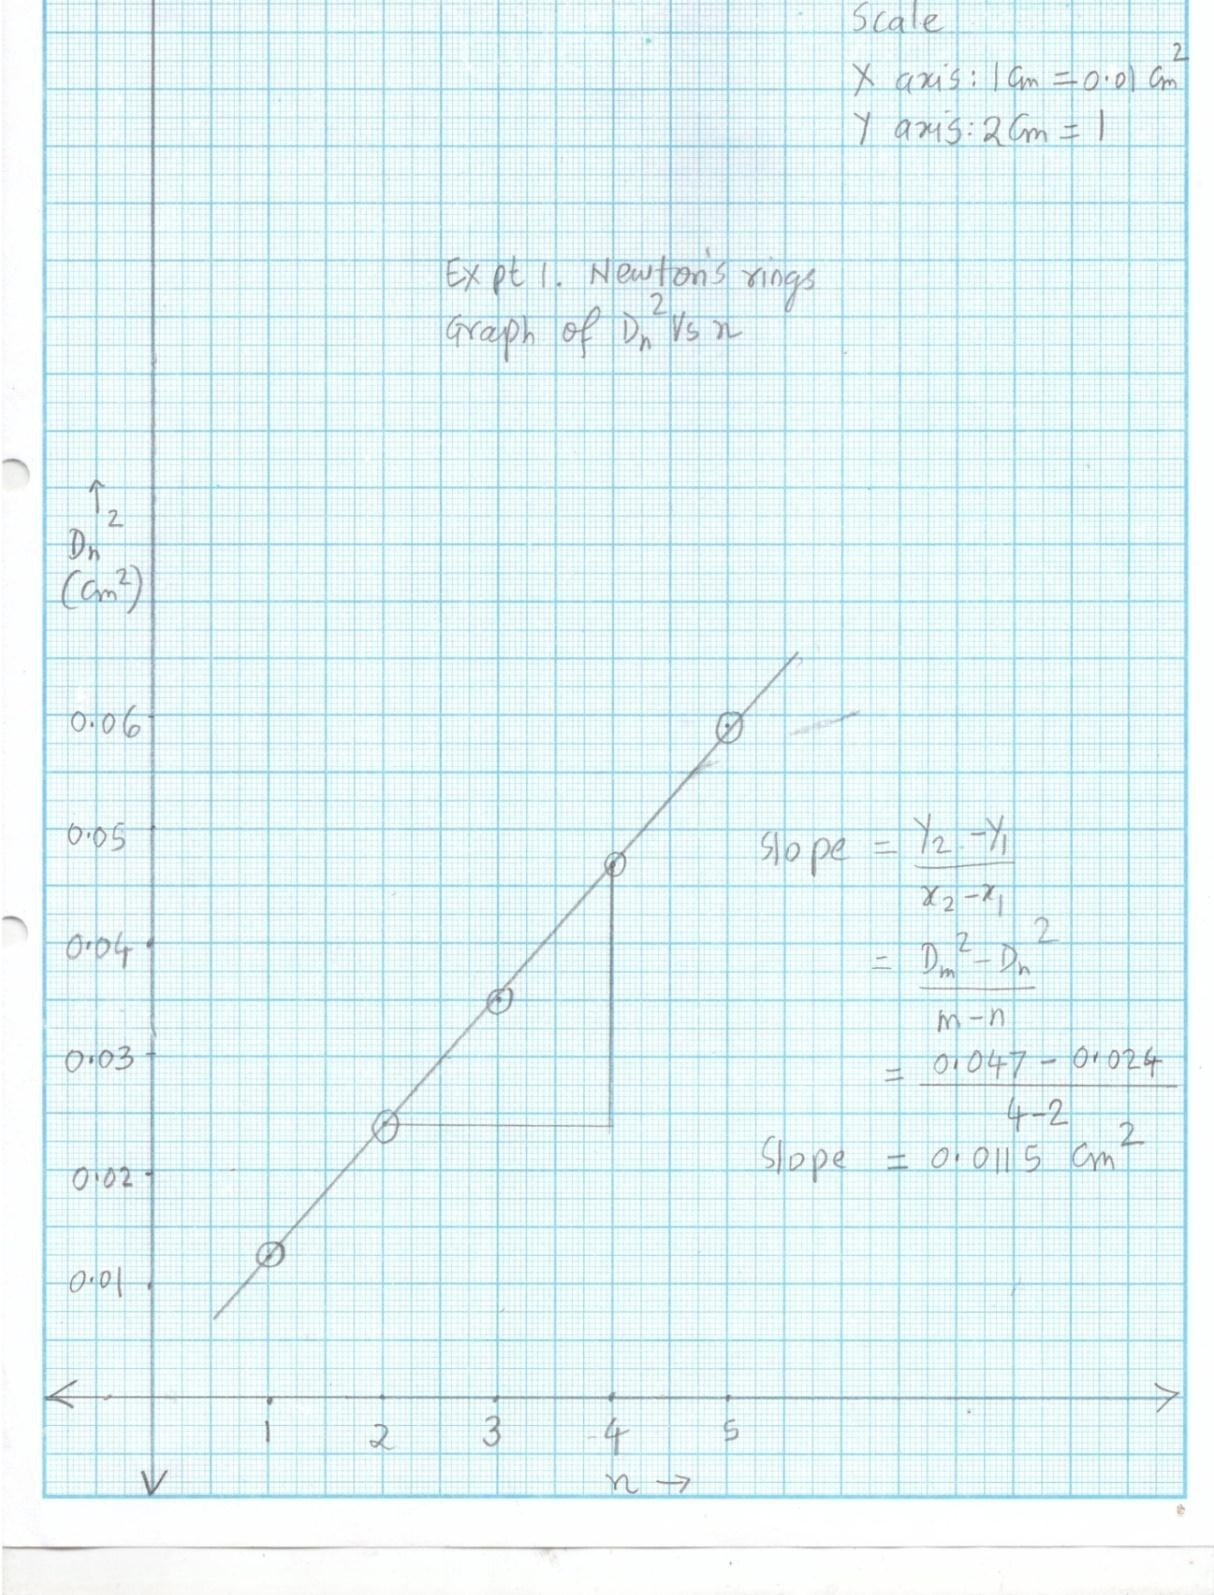 Scale
X axis: 1Cm = 0.01 Cm²
Y axis: 2Cm = 1
Expt 1. Newton's rings
Graph of Dn² Vs n
↑
Dn²
(Cm²)
0.06
0.05
0.04
0.03
0.02
0.01
Slope = Y2 - Y1
x2 - x1
= Dm² - Dn²
m - n
= 0.047 - 0.024
4-2
Slope = 0.0115 Cm²
1 2 3 4 5
n →